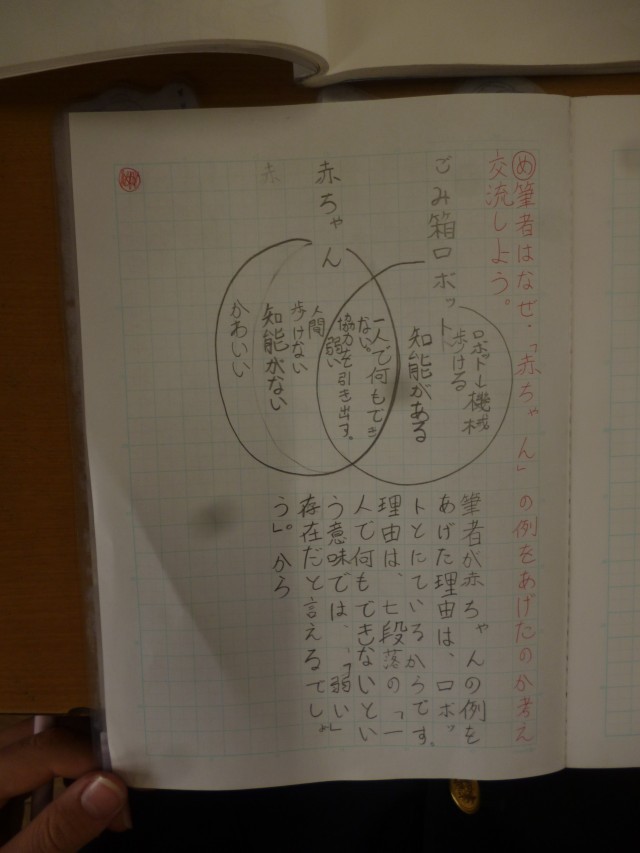 め筆者はなぜ、「赤ちゃん」の例をあげたのか考え
交流しよう。
ごみ箱ロボット
ロボット機械
歩ける
知能がある
一人で何もでき
ない。
協力を引き出す。
弱い
赤ちゃん
人間
歩けない
知能がない
かわいい
赤
筆者が赤ちゃんの例を
あげた理由は、ロボッ
トとにているからです。
理由は、七段落の「一
人で何もできないとい
う意味では、「弱い」
存在だと言えるでしょ
う。」から